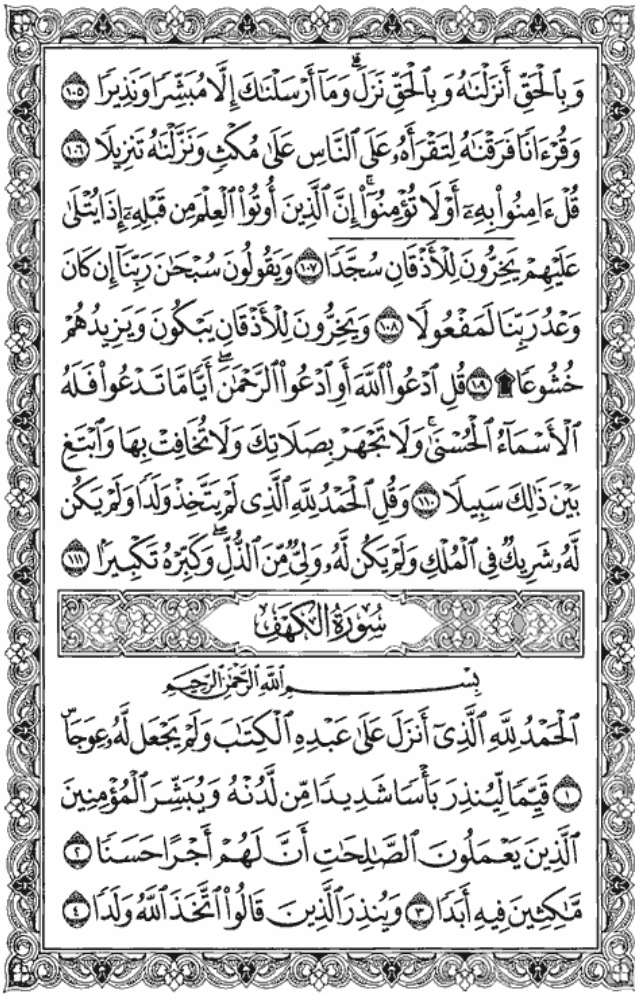 وَبِالْحَقِّ أَنزَلْنَاهُ وَبِالْحَقِّ نَزَلَ ۗ وَمَا أَرْسَلْنَاكَ إِلَّا مُبَشِّرًا وَنَذِيرًا ١٠٥
وَقُرْءَانًا فَرَقْنَاهُ لِتَقْرَأَهُ عَلَى النَّاسِ عَلَىٰ مُكْثٍ وَنَزَّلْنَاهُ تَنزِيلًا ١٠٦
قُلْ ءَامِنُوا بِهِ أَوْ لَا تُؤْمِنُوا ۚ إِنَّ الَّذِينَ أُوتُوا الْعِلْمَ مِن قَبْلِهِ إِذَا يُتْلَىٰ
عَلَيْهِمْ يَخِرُّونَ لِلْأَذْقَانِ سُجَّدًا ١٠٧ وَيَقُولُونَ سُبْحَٰنَ رَبِّنَا إِن كَانَ
وَعْدُ رَبِّنَا لَمَفْعُولًا ١٠٨ وَيَخِرُّونَ لِلْأَذْقَانِ يَبْكُونَ وَيَزِيدُهُمْ
خُشُوعًا ۩ ١٠٩ قُلِ ادْعُوا اللَّهَ أَوِ ادْعُوا الرَّحْمَٰنَ ۖ أَيًّا مَّا تَدْعُوا فَلَهُ
الْأَسْمَاءُ الْحُسْنَىٰ ۚ وَلَا تَجْهَرْ بِصَلَاتِكَ وَلَا تُخَافِتْ بِهَا وَابْتَغِ
بَيْنَ ذَٰلِكَ سَبِيلًا ١١٠ وَقُلِ الْحَمْدُ لِلَّهِ الَّذِى لَمْ يَتَّخِذْ وَلَدًا وَلَمْ يَكُن
لَّهُ شَرِيكٌ فِى الْمُلْكِ وَلَمْ يَكُن لَّهُ وَلِىٌّ مِّنَ الذُّلِّ ۖ وَكَبِّرْهُ تَكْبِيرًا ١١١
سُورَةُ الْكَهْفِ
بِسْمِ اللَّهِ الرَّحْمَٰنِ الرَّحِيمِ
الْحَمْدُ لِلَّهِ الَّذِى أَنزَلَ عَلَىٰ عَبْدِهِ الْكِتَٰبَ وَلَمْ يَجْعَل لَّهُ عِوَجًا ۜ
١ قَيِّمًا لِّيُنذِرَ بَأْسًا شَدِيدًا مِّن لَّدُنْهُ وَيُبَشِّرَ الْمُؤْمِنِينَ
الَّذِينَ يَعْمَلُونَ الصَّالِحَاتِ أَنَّ لَهُمْ أَجْرًا حَسَنًا ٢
مَّاكِثِينَ فِيهِ أَبَدًا ٣ وَيُنذِرَ الَّذِينَ قَالُوا اتَّخَذَ اللَّهُ وَلَدًا ٤